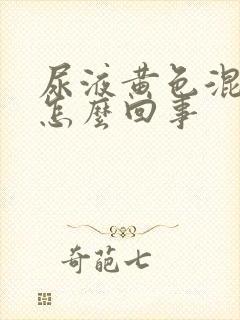 尿液黄色混
怎麼回事
奇葩七